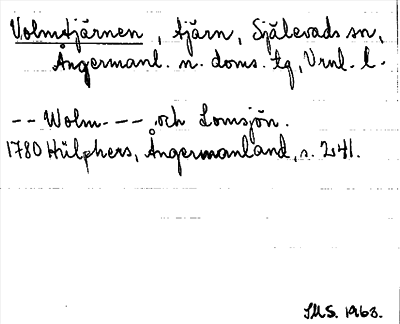 Volmtjärnen, tjärn, Själevads sn,
Ångermanl. n. doms. tg, Vrnl. l.
-- Wolm. --- och Lomsjön.
1780 Hülphers, Ångermanland, s. 241.
SMS. 1963.